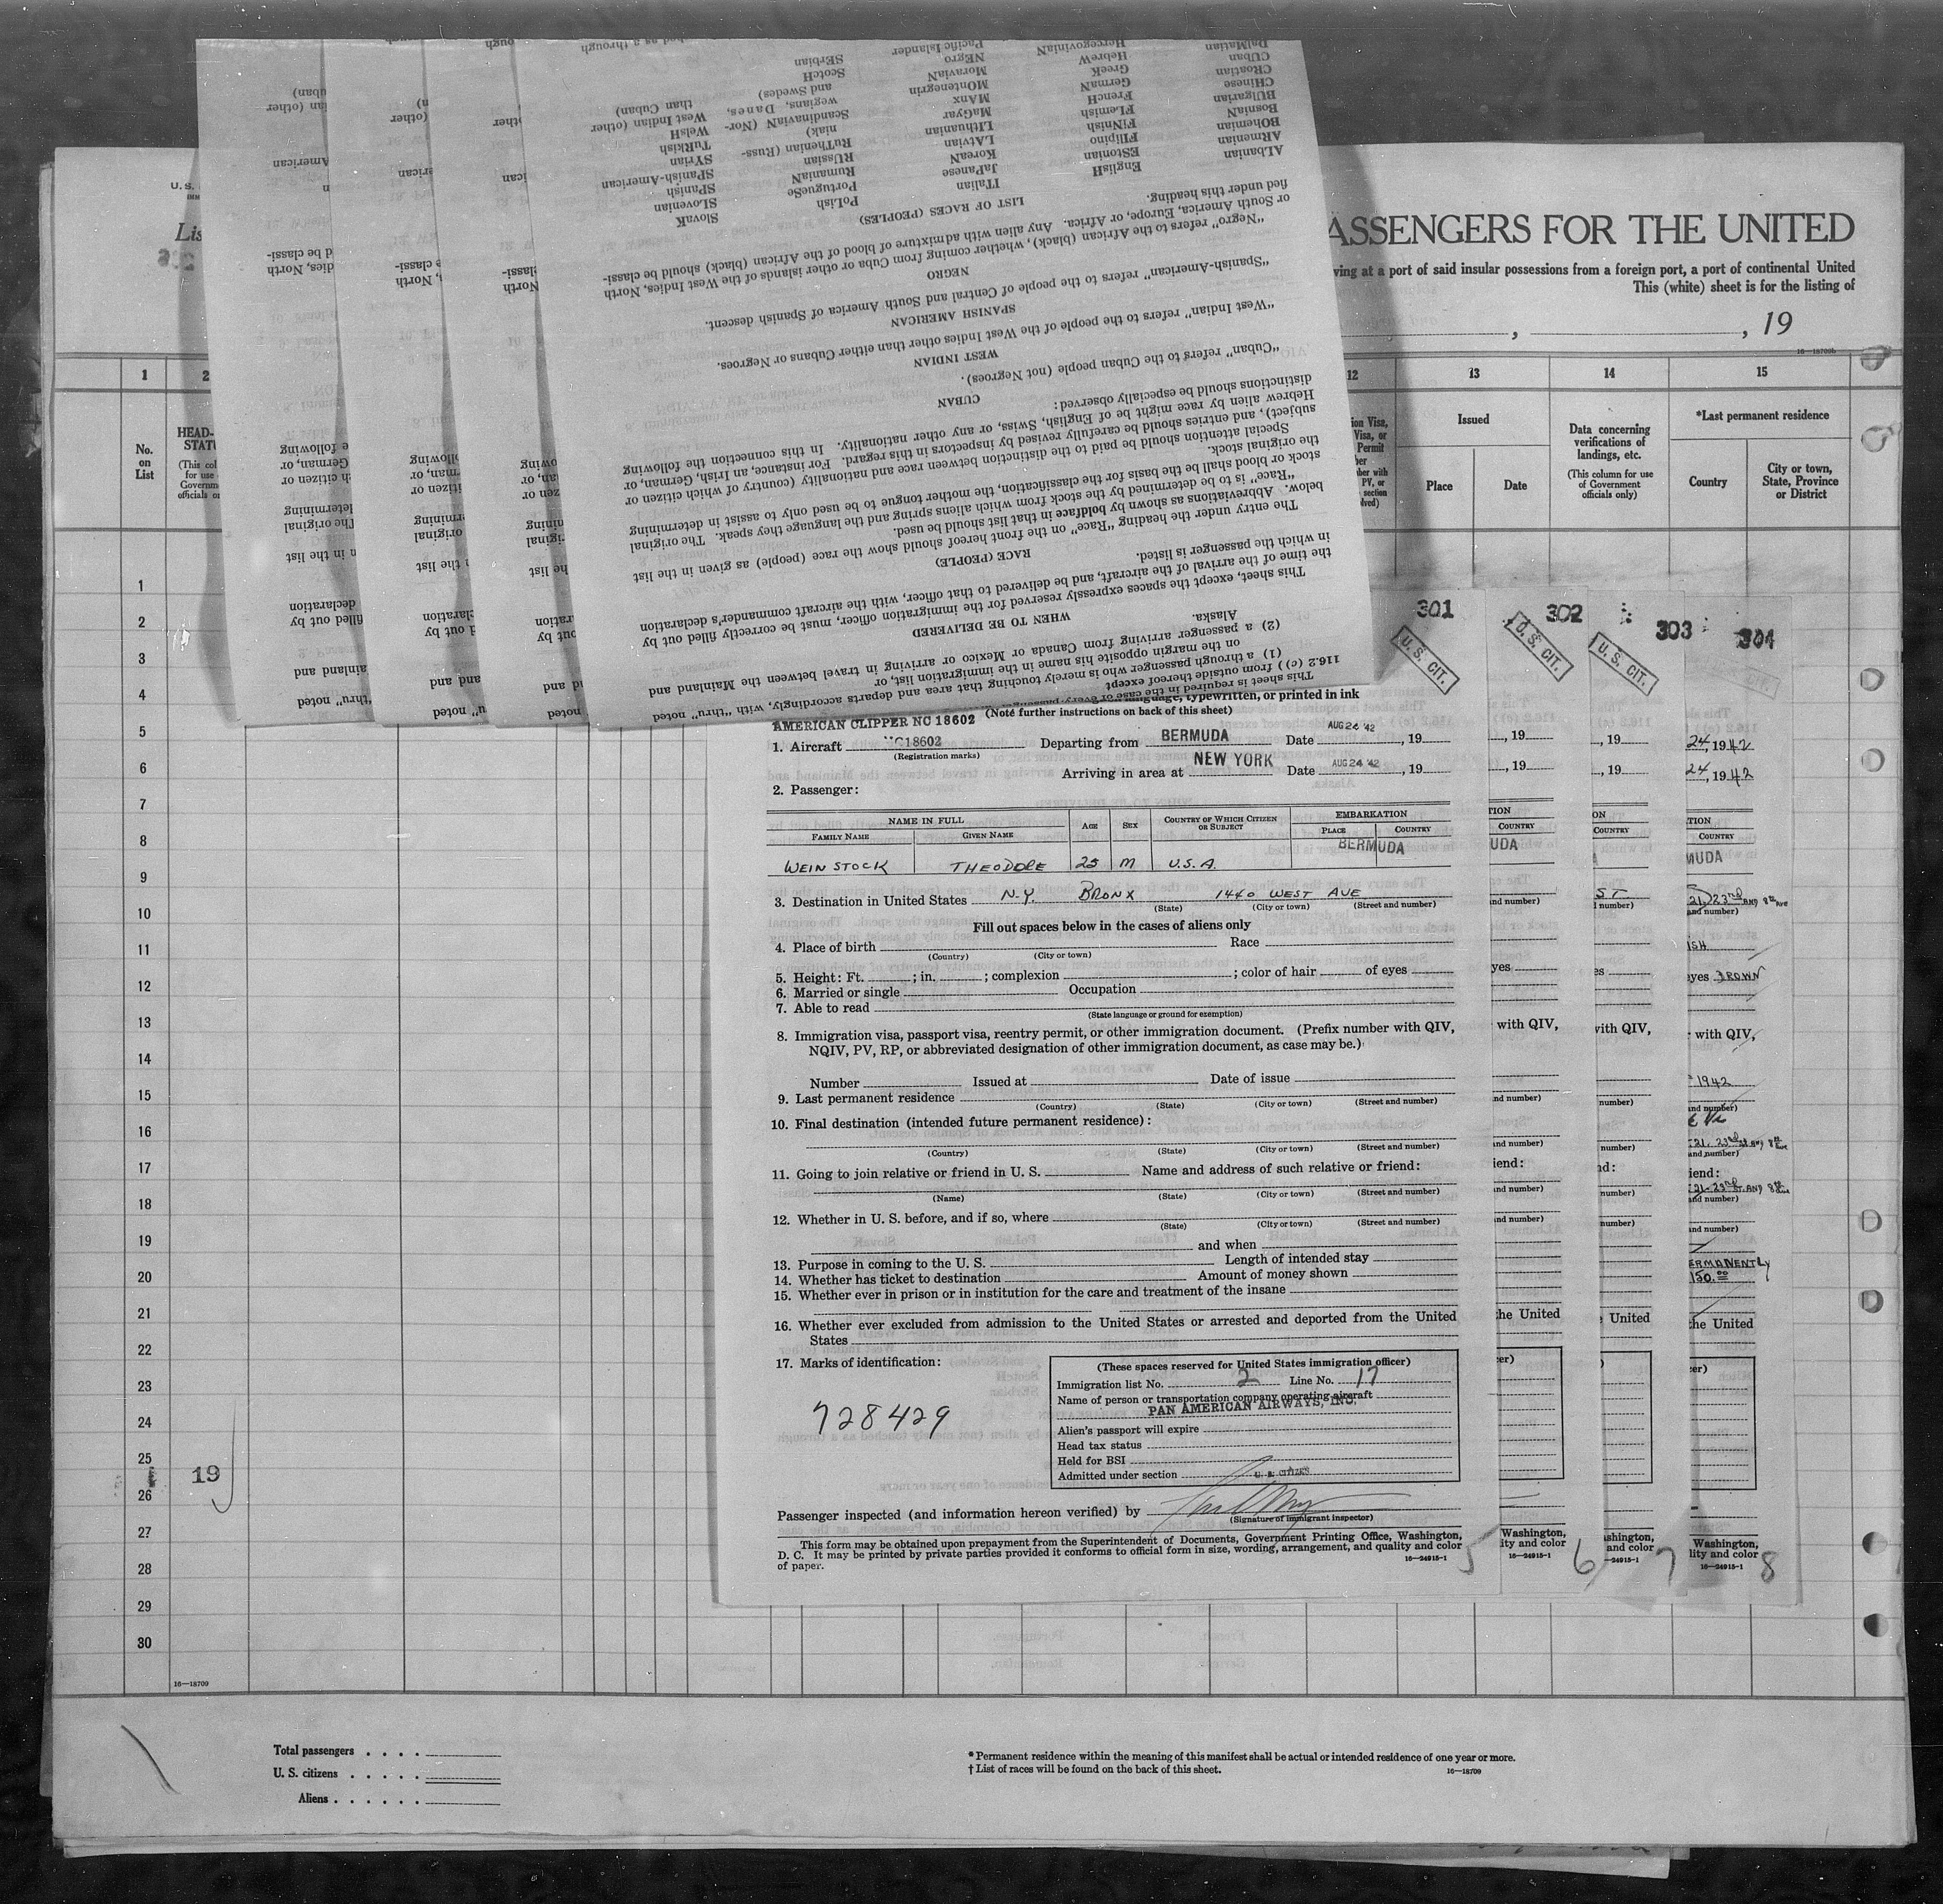 U. S.
Lis
PASSENGERS FOR THE UNITED
ving at a port of said insular possessions from a foreign port, a port of continental United
This (white) sheet is for the listing of
, 19
16—18709b
1
2
12
13
14
15
No.
on
List
HEAD-
STATU
(This col
for use
Governm
officials o
ion Visa,
Visa, or
Permit
ber
ber with
PV, or
section
lved)
Issued
Place
Date
Data concerning
verifications of
landings, etc.
(This column for use
of Government
officials only)
*Last permanent residence
Country
City or town,
State, Province
or District
This sheet is required in the case of every passenger
116.2 (c)) from outside thereof except
(1) a through passenger who is merely touching that area and departs accordingly, with "thru" noted
on the margin opposite his name in the immigration list, or
(2) a passenger arriving from Canada or Mexico or arriving in travel between the Mainland and
Alaska.
WHEN TO BE DELIVERED
This sheet, except the spaces expressly reserved for the immigration officer, must be correctly filled out by
the time of the arrival of the aircraft, and be delivered to that officer, with the aircraft commander's declaration
in which the passenger is listed.
RACE (PEOPLE)
The entry under the heading "Race" on the front hereof should show the race (people) as given in the list
below. Abbreviations as shown by boldface in that list should be used.
"Race" is to be determined by the stock from which aliens spring and the language they speak. The original
stock or blood shall be the basis for the classification, the mother tongue to be used only to assist in determining
the original stock.
Special attention should be paid to the distinction between race and nationality (country of which citizen or
subject), and entries should be carefully revised by inspectors in this regard. For instance, an Irish, German, or
Hebrew alien by race might be of English, Swiss, or any other nationality. In this connection the following
distinctions should be especially observed:
CUBAN
"Cuban" refers to the Cuban people (not Negroes).
WEST INDIAN
"West Indian" refers to the people of the West Indies other than either Cubans or Negroes.
SPANISH AMERICAN
"Spanish-American" refers to the people of Central and South America of Spanish descent.
NEGRO
"Negro" refers to the African (black), whether coming from Cuba or other islands of the West Indies, North
or South America, Europe, or Africa. Any alien with admixture of blood of the African (black) should be classi-
fied under this heading.
LIST OF RACES (PEOPLES)
ALbanian
ARmenian
BOhemian
BosniaN
BUlgarian
CHinese
CRoatian
CUban
DalMatian
EnglisH
EStonian
FIlipino
FINnish
FLemish
FrencH
GermaN
GreeK
HebreW
HercegoviniaN
ITalian
JaPanese
KoreaN
LAtvian
LIthuanian
MaGyar
MAnx
MOntenegrin
MoraviaN
NEgro
Pacific Islander
PoLish
PortugueSe
RumaniaN
RUssian
RuThenian (Russ-
niak)
ScandinaviaN (Nor-
wegians, Danes,
and Swedes)
ScotcH
SErbian
SlovaK
SLovenian
SPanish
SPanish-American
SYrian
TuRkish
WelsH
West Indian (other
than Cuban)
301
302
303
304
U. S. CIT.
U. S. CIT.
U. S. CIT.
language, typewritten, or printed in ink
(Note further instructions on back of this sheet)
AMERICAN CLIPPER NC 18602
1. Aircraft NC18602 Departing from BERMUDA Date AUG 24 '42, 19
(Registration marks)
Arriving in area at NEW YORK Date AUG 24 '42, 19
2. Passenger:
NAME IN FULL
FAMILY NAME
GIVEN NAME
AGE
SEX
COUNTRY OF WHICH CITIZEN
OR SUBJECT
EMBARKATION
PLACE
COUNTRY
WEINSTOCK THEODORE 25 M U.S.A. BERMUDA
3. Destination in United States N.Y. BRONX 1440 WEST AVE
(State) (City or town) (Street and number)
Fill out spaces below in the cases of aliens only
4. Place of birth Race
(Country) (City or town)
5. Height: Ft. ; in. ; complexion ; color of hair of eyes
6. Married or single Occupation
7. Able to read
(State language or ground for exemption)
8. Immigration visa, passport visa, reentry permit, or other immigration document. (Prefix number with QIV,
NQIV, PV, RP, or abbreviated designation of other immigration document, as case may be.)
Number Issued at Date of issue
9. Last permanent residence
(Country) (State) (City or town) (Street and number)
10. Final destination (intended future permanent residence):
(Country) (State) (City or town) (Street and number)
11. Going to join relative or friend in U. S. Name and address of such relative or friend:
(Name) (State) (City or town) (Street and number)
12. Whether in U. S. before, and if so, where
(State) (City or town) (Street and number)
and when
13. Purpose in coming to the U. S. Length of intended stay
14. Whether has ticket to destination Amount of money shown
15. Whether ever in prison or in institution for the care and treatment of the insane
16. Whether ever excluded from admission to the United States or arrested and deported from the United
States
17. Marks of identification:
728429
(These spaces reserved for United States immigration officer)
Immigration list No. 2 Line No. 17
Name of person or transportation company operating aircraft
PAN AMERICAN AIRWAYS, INC.
Alien's passport will expire
Head tax status
Held for BSI
Admitted under section U. S. CITIZEN
Passenger inspected (and information hereon verified) by
(Signature of immigrant inspector)
This form may be obtained upon prepayment from the Superintendent of Documents, Government Printing Office, Washington,
D. C. It may be printed by private parties provided it conforms to official form in size, wording, arrangement, and quality and color
of paper.
16—24915-1
5
6
7
8
24, 1942
24, 1942
MUDA
21, 23rd AND 8th Ave
ISH
eyes BROWN
with QIV,
1942
21. 23rd St AND 8th Ave
21-23rd ST. AND 8th Ave
ERMANENTLY
150.00
the United
Washington,
lity and color
16—24915-1
1
2
3
4
5
6
7
8
9
10
11
12
13
14
15
16
17
18
19
20
21
22
23
24
25
26
27
28
29
30
19
16—18709
Total passengers
U. S. citizens
Aliens
* Permanent residence within the meaning of this manifest shall be actual or intended residence of one year or more.
† List of races will be found on the back of this sheet.
16—18709